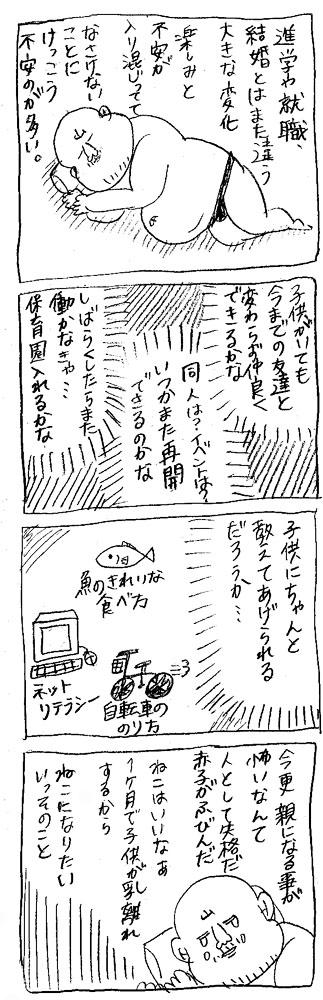 進学や就職、
結婚とはまた違う
大きな変化
楽しみと
不安が
入り混じってて
なさけない
ことに
けっこう
不安のが多い。
子供がいても
今までの友達と
変わらず仲良く
できるかな
同人は?イベントは?
いつかまた再開
できるのかな
しばらくしたらまた
働かなきゃ…
保育園入れるかな
子供にちゃんと
教えてあげられる
だろうか…
魚のきれいな
食べ方
ネット
リテラシー
自転車の
のり方
今更親になる事が
怖いなんて
人として失格だ
赤子がふびんだ
ねこはいいなぁ
1ヶ月で子供が乳離れ
するから
ねこになりたい
いっそのこと